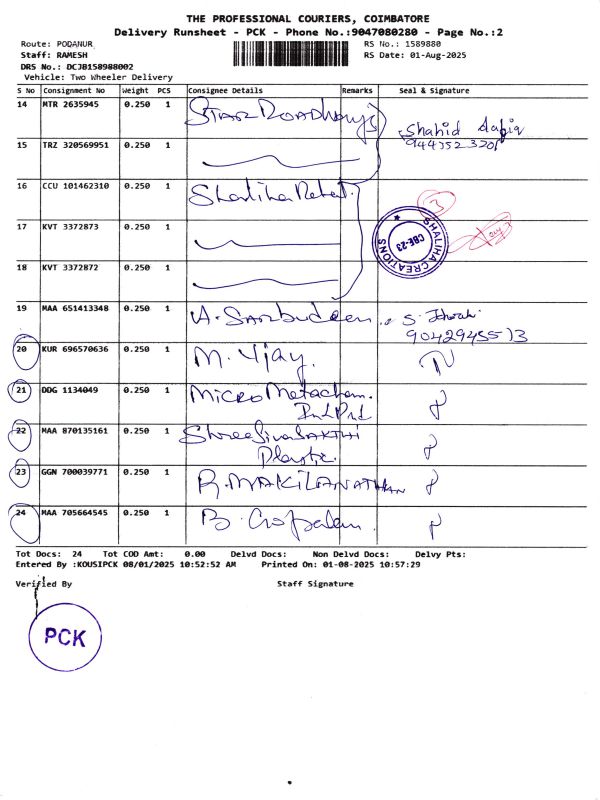 THE PROFESSIONAL COURIERS, COIMBATORE
Delivery Runsheet - PCK - Phone No.:9047080280 - Page No.:2
Route: PODANUR RS No.: 1589880
Staff: RAMESH RS Date: 01-Aug-2025
DRS No.: DCJB158988002
Vehicle: Two Wheeler Delivery
S No Consignment No Weight PCS Consignee Details Remarks Seal & Signature
14 MTR 2635945 0.250 1 STAR Roadways Shahid
15 TRZ 320569951 0.250 1
16 CCU 101462310 0.250 1 3
17 KVT 3372873 0.250 1 SHALIHA CREATIONS CBE-23
18 KVT 3372872 0.250 1
19 MAA 651413348 0.250 1 A. Sarbudeen S.
9042945513
20 KUR 696570636 0.250 1 M. Vijay.
21 DDG 1134049 0.250 1 Micro Metachem.
Ind Pvt
22 MAA 870135161 0.250 1 Shree Siva SAKTHI
Plastic.
23 GGN 700039771 0.250 1 R. MAKILANATHAN
24 MAA 705664545 0.250 1 B. Gopalan.
Tot Docs: 24 Tot COD Amt: 0.00 Delvd Docs: Non Delvd Docs: Delvy Pts:
Entered By :KOUSIPCK 08/01/2025 10:52:52 AM Printed On: 01-08-2025 10:57:29
Verified By Staff Signature
PCK